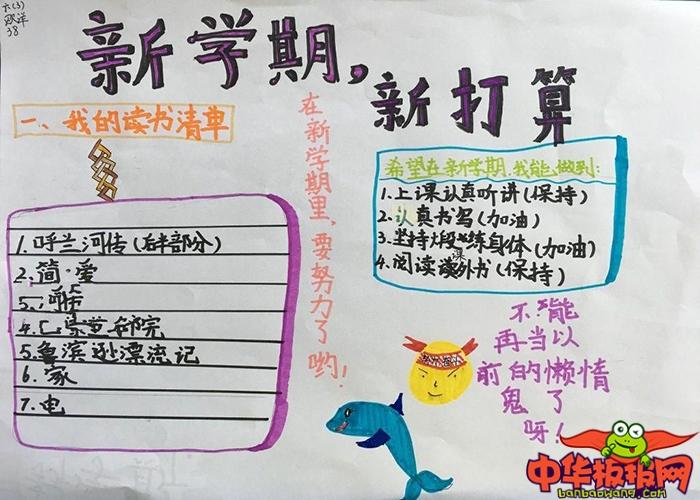 六(3)
38
新学期,
新打算
一、我的读书清单
1.呼兰河传(后半部分)
2.简·爱
4.
院
5.鲁滨逊漂流记
6.家
7.电
在新学期里,要努力了哟!
希望在新学期,我能做到:
1.上课认真听讲(保持)
2.认真书写(加油)
3.坚持煅练身体(加油)
4.阅读课外书(保持)
不能
再当以
前的懒惰
鬼了
呀!
中华板报网
banbaowang.com